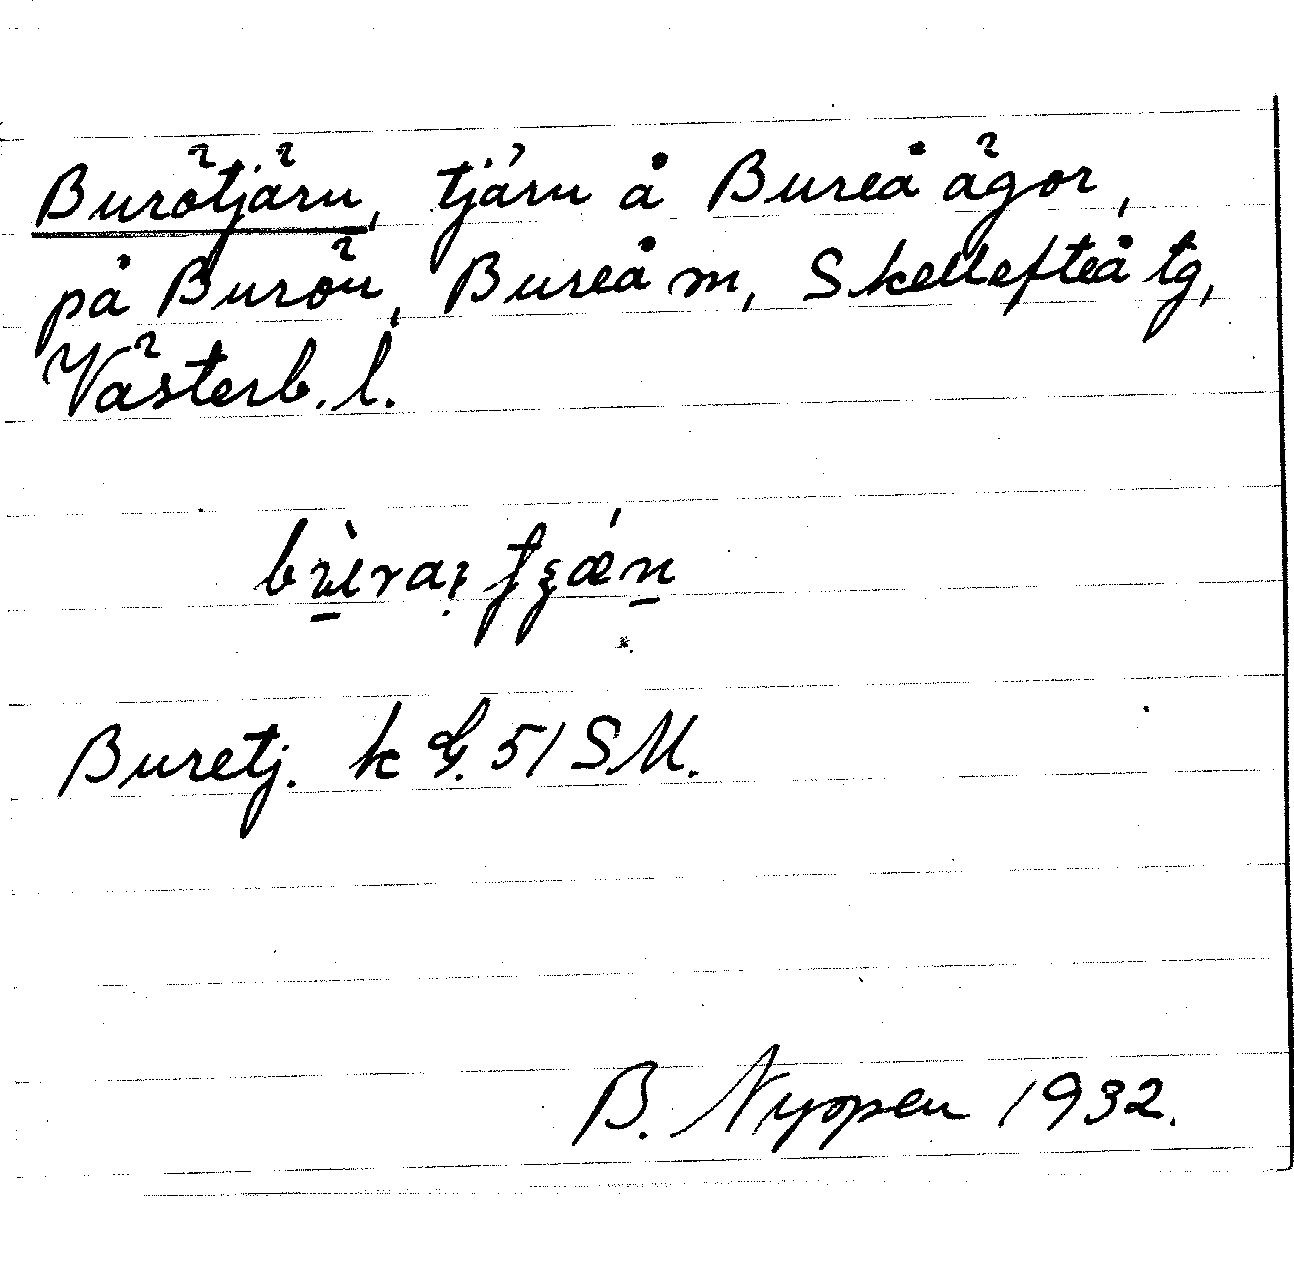 Burötjärn, tjärn å Bureå ägor,
på Burön, Bureå m, Skellefteå tg,
Västerb. l.
Buretj. k G. 51 SM.
B. Nyopen 1932.